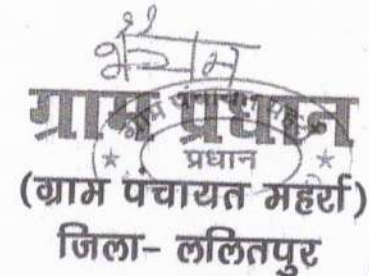 ग्राम प्रधान
प्रधान
(ग्राम पंचायत महर्रा)
जिला- ललितपुर